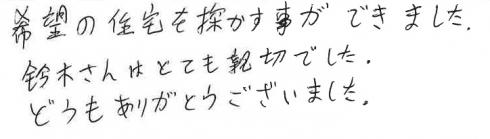 希望の住宅を探かす事ができました.
鈴木さんはとても親切でした.
どうもありがとうございました.